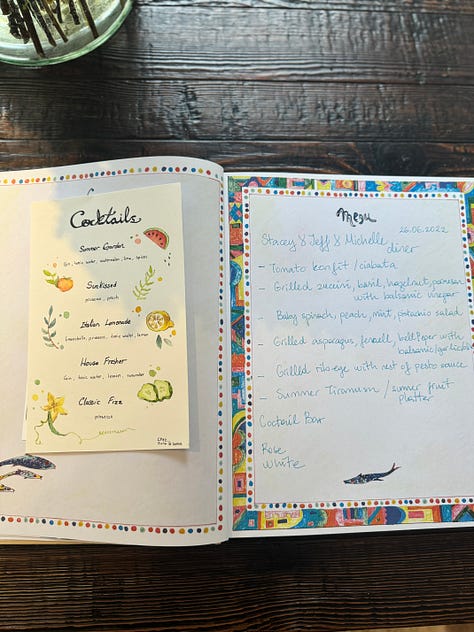 Cocktails
Summer Garden
Gin, tonic water, watermelon, lime, spices
Sunkissed
prosecco, peach
Italian Lemonade
limoncello, prosecco, tonic water, lemon
House Fresher
Gin, tonic water, lemon, cucumber
Classic Fizz
prosecco
Menu
26.06.2022
Stacey & Jeff & Michelle
diner
- Tomato konfit / ciabata
- Grilled zuccini, basil, hazelnut, parmesan
with balsamic vinegar
- Baby spinach, peach, mint, pistacio salad
- Grilled asparagus, fenell, bell peper with
balsamic/garlic
- Grilled ribeye with rest of pesto sauce
- Summer Tiramum / sumer fruit
platter
Coctail Bar
Rose
White